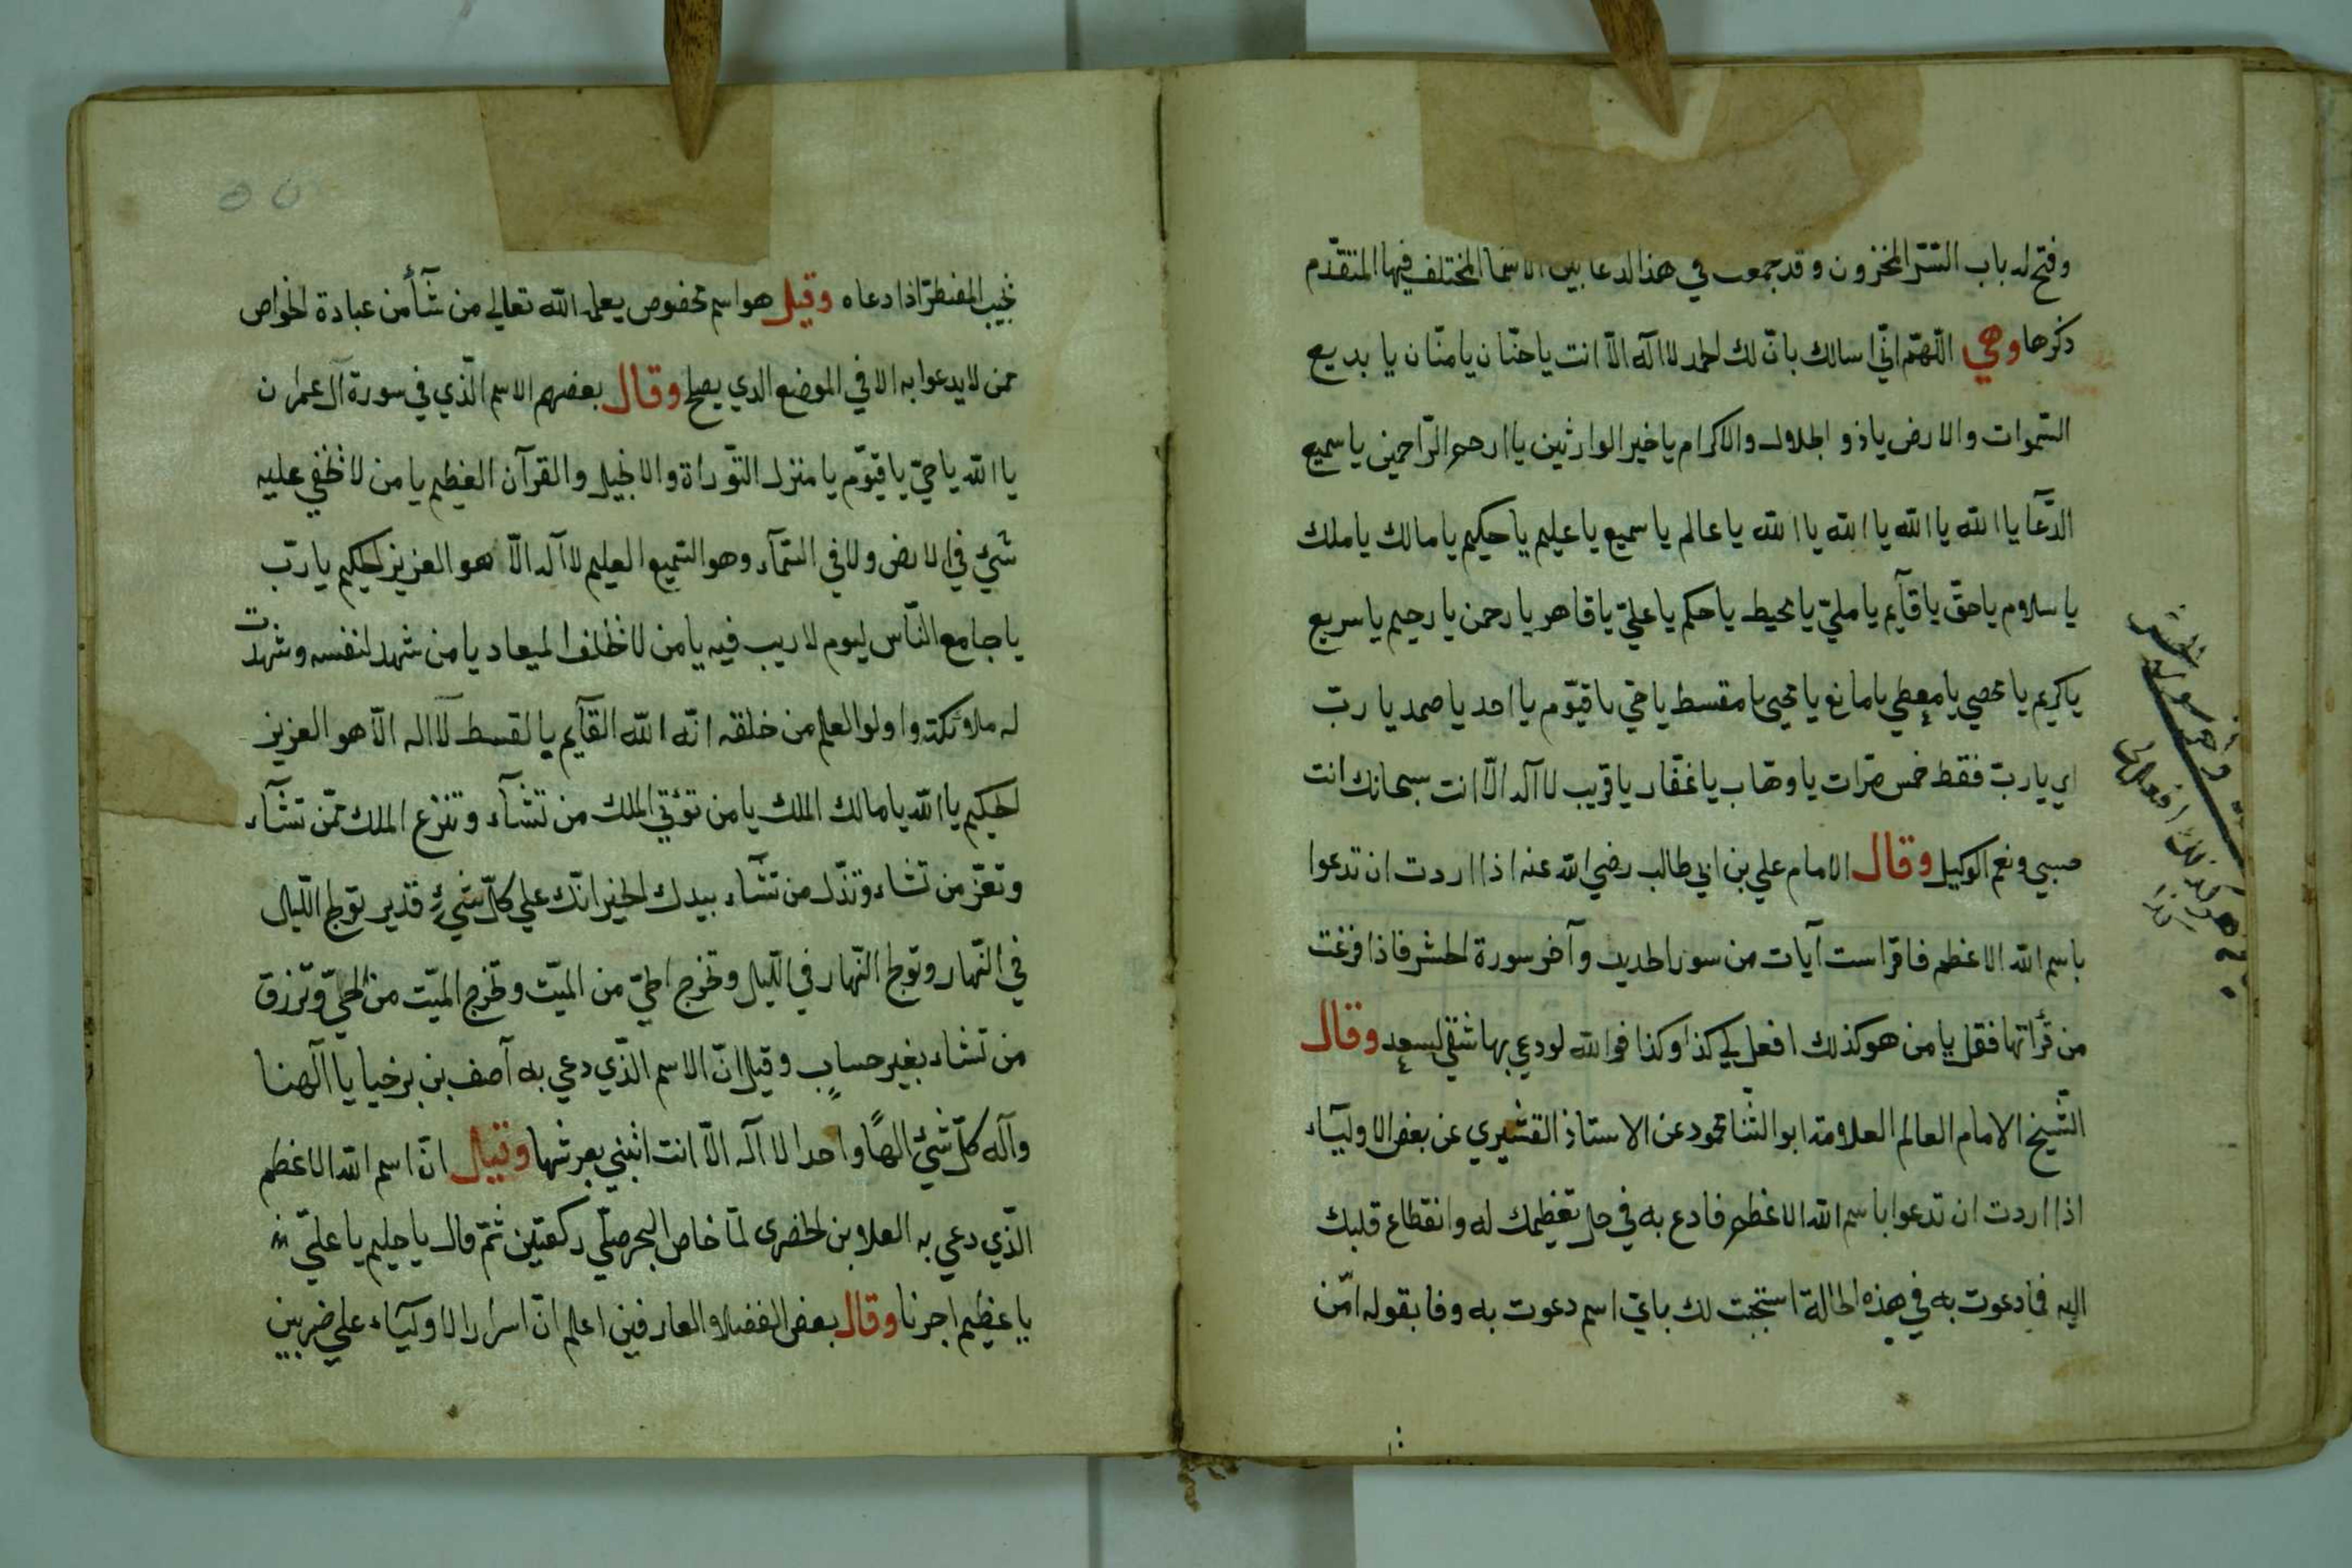 وفتح له باب السّر المخزون وقد جمعت في هذا الدعا بين الاسما المختلف فيها المتقدّم
ذكرها وهي اللّهمّ انّي اسالك بانّ لك الحمد لا اله الّا انت يا حنّان يا منّان يا بديع
السّموات والارض ياذو الجلال والاكرام يا خير الوارثين يا ارحم الرّاحمين يا سميع
الدّعآ يا الله يا الله يا الله يا الله يا عالم يا سميع يا عليم يا حكيم يا مالك يا ملك
يا سلام يا حقّ يا قآيم يا مليّ يا محيط يا حكم يا عليّ يا قاهر يا رحمن يا رحيم يا سريع
يا كريم يا محصي يا معطي يا مانع يا محيي يا مقسط يا حي يا قيّوم يا احد يا صمد يا ربّ
اي يا ربّ فقط خمس مرّات يا وهّاب يا غفّار يا قريب لا آله الّا انت سبحانك انت
حسبي ونعم الوكيل وقال الامام علي بن ابي طالب رضي الله عنه اذا اردت ان تدعوا
باسم الله الاعظم فاقرا ست آيات من سورا لحديد وآخر سورة الحشر فاذا فرغت
من قرأتها فقل يا من هو كذلك افعل لي كذا وكذا فوالله لو دعي بها شقي لسعد وقال
الشّيخ الامام العالم العلامة ابو الثّنا محمود عن الاستاذ القشيري عن بعض الاوليآء
اذا اردت ان تدعوا باسم الله الاعظم فادع به في حل تعظيمك له وانقطاع قلبك
اليه فما دعوت به في هذه الحالة استجبت لك باي اسم دعوت به وفا بقوله امّن
يجيب المضطرّ اذا دعاه وقيل هو اسم مخصوص يعلمه الله تعالي من شآء من عبادة الخواص
ممن لا يدعوا به الا في الموضع الدي يصلح وقال بعضهم الاسم الّذي في سورة آل عمران
يا الله يا حيّ يا قيّوم يا منزل التوّراة والانجيل والقرآن العظيم يا من لا تخفي عليه
شئ في الارض ولا في السّمآء وهو السّميع العليم لا آله الّا هو العزيز الحكيم يا ربّ
يا جامع النّاس ليوم لا ريب فيه يا من لا تخلف الميعاد يا من شهد لنفسه وشهدت
له ملائكته واولوا العلم من خلقه انّه الله القآيم بالقسط لآاله الّا هو العزيز
الحكيم يا الله يا مالك الملك يا من تؤتي الملك من تشآء وتنزع الملك ممّن تشآء
وتعزّ من تشاء وتذّل من تشآء بيدك الخير انّك علي كلّ شيء قدير تولج اللّيل
في النّهار وتولج النّهار في اللّيل وتخرج الحيّ من الميّت وتخرج الميّت من الحيّ وترزق
من تشاء بغير حساب وقيل انّ الاسم الّذي دعي به آصف بن برخيا يا آلهنا
وآله كلّ شئ الهًا واحدا لا آله الّا انت ائتني بعرشها وقيل انّ اسم الله الاعظم
الّذي دعي به العلا بن الحضرى لمّا خاض البحر صلّي ركعتين ثمّ قال يا حليم يا عليّ
يا عظيم اجرنا وقال بعض الفضلا والعارفين اعلم انّ اسرار الاوليآء علي ضربين